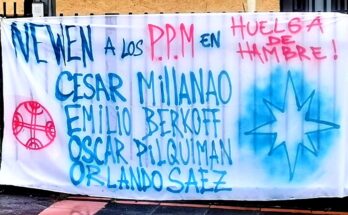 NEWEN A LOS P.P.M EN HUELGA DE HAMBRE!
CESAR MILLANAO
EMILIO BERKOFF
OSCAR PILQUIMAN
ORLANDO SAEZ